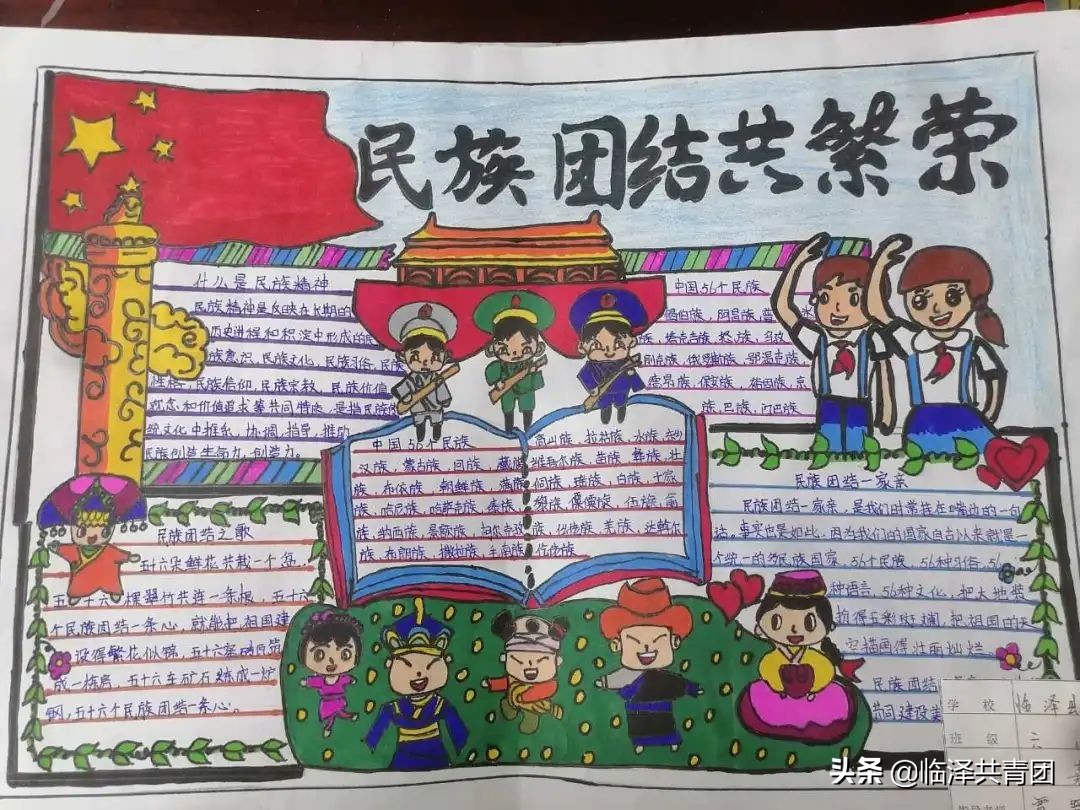 民族团结共繁荣
什么是民族精神
民族精神是反映在长期的
历史进程和积淀中形成的
族意识,民族文化,民族习俗,民族
性格,民族信仰,民族宗教,民族价值
观念和价值追求等共同特质,是指民族
统文化中维系,协调,指导,推动
民族创造生命力,创造力。
中国56个民族
鄂伯族,阿昌族,普米
族,塔吉克族,怒族,乌孜
别克族,俄罗斯族,鄂温克族,
德昂族,保安族,裕固族,京
族,巴族,门巴族
中国56个民族
汉族,蒙古族,回族,藏族
族,布依族,朝鲜族,满族
族,哈尼族,哈萨克族,傣族,
族,纳西族,景颇族,柯尔克孜
族,布朗族,撒拉族,毛南族
高山族,拉祜族,水族,东乡
维吾尔族,苗族,彝族,壮
侗族,瑶族,白族,土家
黎族,傈僳族,佤族,畲
族,仫佬族,羌族,达斡尔
仡佬族
民族团结之歌
五十六朵鲜花共栽一个盆,
五十六棵翠竹共连一条根,五十六
个民族团结一条心,就能把祖国建
设得繁花似锦,五十六层
成一栋房,五十六车矿石炼成一炉
钢,五十六个民族团结一条心。
民族团结一家亲
民族团结一家亲,是我们时常挂在嘴边的一句
话。事实也是如此,因为我们的国家自古以来就是一
个统一的多民族国家,56个民族,56种习俗,56
种语言,56种文化,把大地装
扮得五彩斑斓,把祖国的天
空描画得壮丽灿烂。
民族团结
共同建设
学 校 临泽县
班 级 六
头条 @临泽共青团